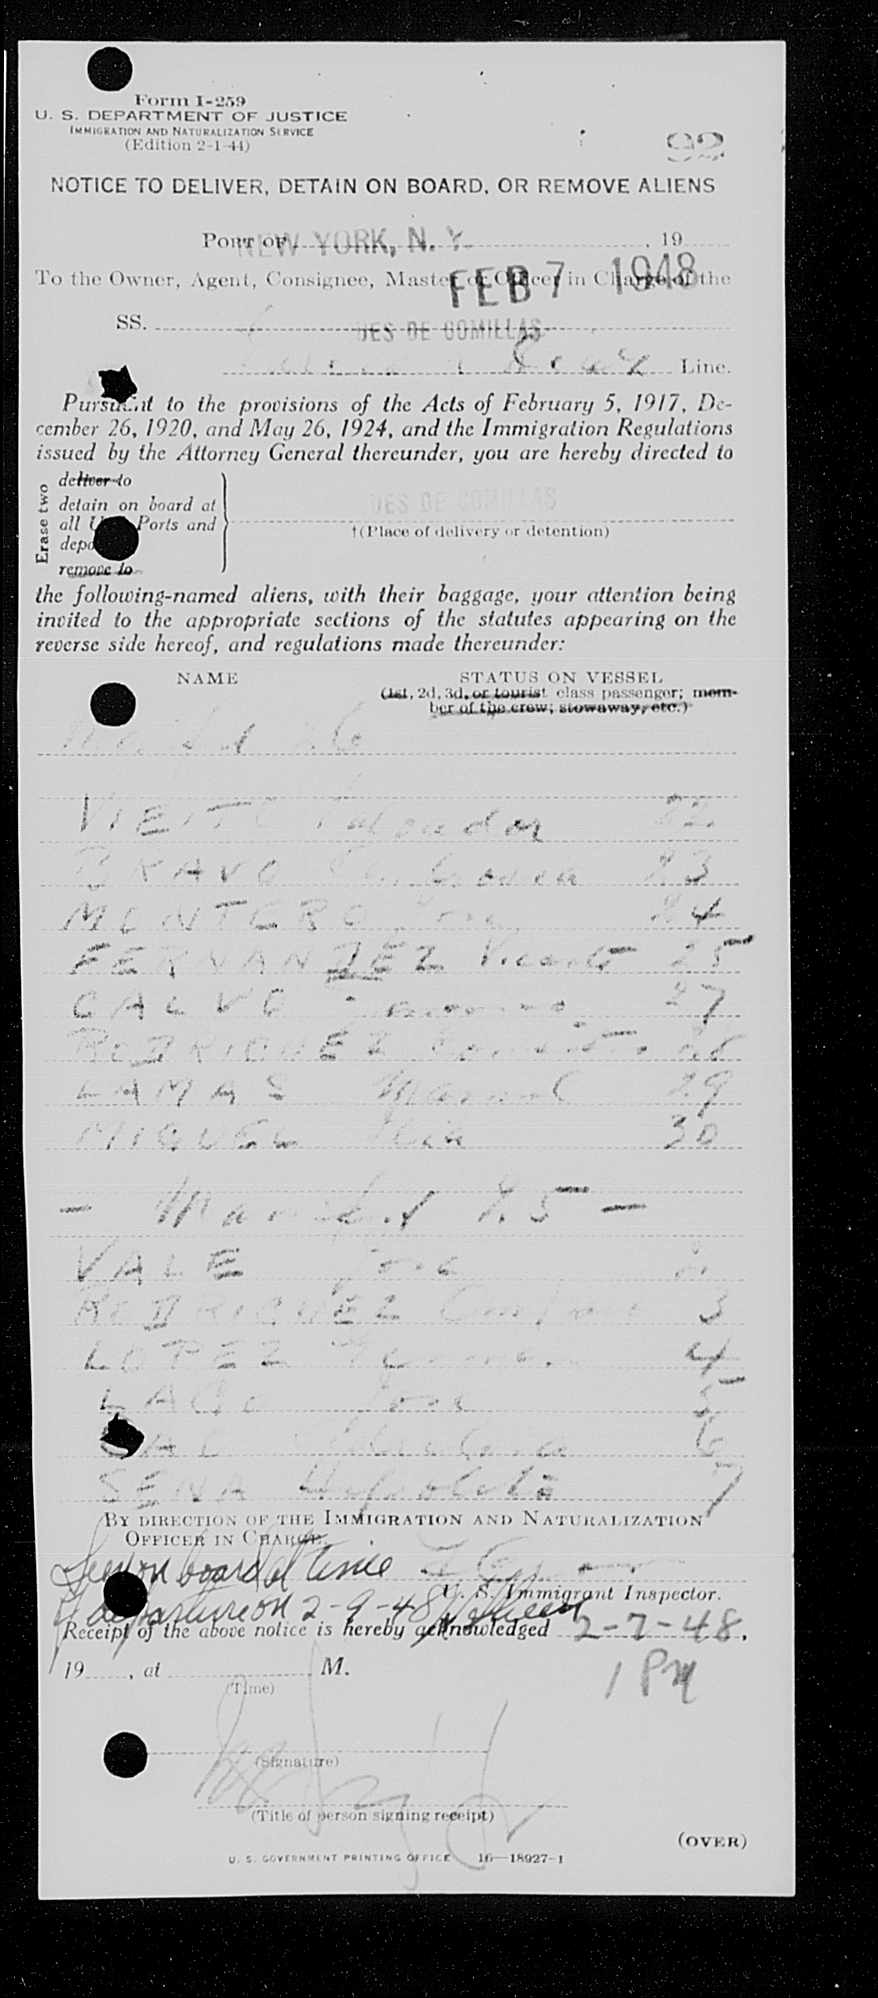 Form I-259
U. S. DEPARTMENT OF JUSTICE
IMMIGRATION AND NATURALIZATION SERVICE
(Edition 2-1-44)
92
NOTICE TO DELIVER, DETAIN ON BOARD, OR REMOVE ALIENS
PORT OF NEW YORK, N. Y. , 19
To the Owner, Agent, Consignee, Master or Officer in Charge of the
FEB 7 1948
SS. UES DE COMILLAS
Line.
Pursuant to the provisions of the Acts of February 5, 1917, De-
cember 26, 1920, and May 26, 1924, and the Immigration Regulations
issued by the Attorney General thereunder, you are hereby directed to
Erase two
deliver to
detain on board at
all U. Ports and
depo
remove to
UES DE COMILLAS
†(Place of delivery or detention)
the following-named aliens, with their baggage, your attention being
invited to the appropriate sections of the statutes appearing on the
reverse side hereof, and regulations made thereunder:
NAME STATUS ON VESSEL
(1st, 2d, 3d, or tourist class passenger; mem-
ber of the crew; stowaway, etc.)
26
VIEITO Salvador 22
BRAVO 23
MONTERO Jose 24
FERNANDEZ Vicente 25
CALVO 27
RODRIGUEZ 28
LAMAS Manuel 29
MIGUEL 30
- Manifest 25 -
VALE Jose 2
RODRIGUEZ 3
LOPEZ 4
LAGO Jose 5
6
SENA Hipolito 7
BY DIRECTION OF THE IMMIGRATION AND NATURALIZATION
OFFICER IN CHARGE.
Seen on board at time
of departure on 2-9-48
U. S. Immigrant Inspector.
Receipt of the above notice is hereby acknowledged 2-7-48,
19 , at M. 1 PM
(Time)
(Signature)
(Title of person signing receipt)
(OVER)
U. S. GOVERNMENT PRINTING OFFICE 16—18927-1